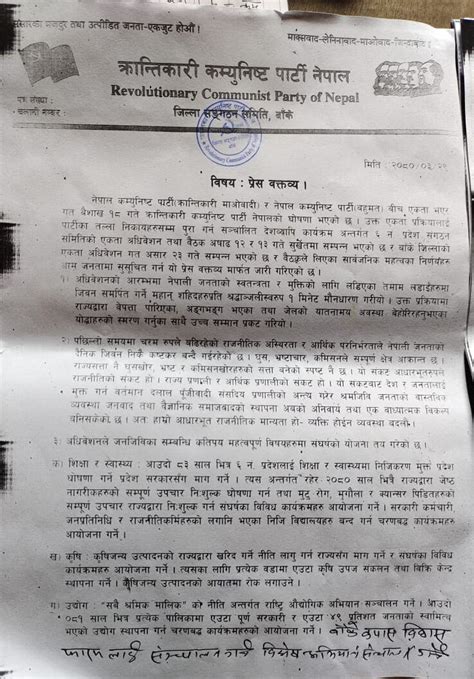 संसारका मजदुर तथा उत्पीडित जनता-एकजुट होऔं !
मार्क्सवाद-लेनिनवाद-माओवाद-जिन्दावाद !
क्रान्तिकारी कम्युनिष्ट पार्टी नेपाल
Revolutionary Communist Party of Nepal
पत्र संख्या :
चलानी नम्बर :
जिल्ला सङ्गठन समिति, बाँके
मिति : २०८०/०३/२८
विषय : प्रेस वक्तव्य ।
नेपाल कम्युनिष्ट पार्टी(क्रान्तिकारी माओवादी) र नेपाल कम्युनिष्ट पार्टी(बहुमत) बीच एकता भएर
गत बैशाख १८ गते क्रान्तिकारी कम्युनिष्ट पार्टी नेपालको घोषणा भएको छ । उक्त एकता प्रक्रियालाई
पार्टीका तल्ला निकायहरुसम्म पुरा गर्न सञ्चालित देशव्यापि कार्यक्रम अन्तर्गत ६ न. प्रदेश संगठन
समितिको एकता अधिवेशन तथा बैठक अषाढ १२ र १३ गते सुर्खेतमा सम्पन्न भएको छ र बाँके जिल्लाको
एकता अधिवेशन गत असार २३ गते सम्पन्न भएको छ र बैठकले लिएका सार्वजनिक महत्वका निर्णयहरु
आम जनतामा सुसूचित गर्न यो प्रेस वक्तव्य मार्फत जारी गरिएको छ ।
१। अधिवेशनको आरम्भमा नेपाली जनताको स्वतन्त्रता र मुक्तिको लागि लडिएका तमाम लडाईहरुमा
जिवन समर्पित गर्ने महान् शहिदहरुप्रति श्रद्धाञ्जलीस्वरुप १ मिनेट मौनधारण गरीयो । उक्त प्रक्रियामा
राज्यद्वारा बेपत्ता पारिएका, अङ्गभङ्ग भएका तथा जेलको यातनामय अवस्था बेहोरिरहनुभएका
योद्धाहरुको स्मरण गर्नुका साथै उच्च सम्मान प्रकट गरियो ।
२। पछिल्लो समयमा चरम रुपले बढिरहेको राजनीतिक अस्थिरता र आर्थिक परनिर्भरताले नेपाली जनताको
दैनिक जिर्वन निकै कष्टकर बन्दै गईरहेको छ । घुस, भ्रष्टाचार, कमिसनले सम्पूर्ण क्षेत्र आक्रान्त छ ।
राज्यसत्ता नै घुसखोर, भ्रष्ट र कमिसनखोरहरुको सत्ता बनेको स्पष्ट नै छ । यो संकट आधारभुतरुपले
राजनीतिको संकट हो । राज्य प्रणाली र आर्थिक प्रणालीको संकट हो । यो संकटबाट देश र जनतालाई
मुक्त गर्न वर्तमान दलाल पूंजीवादी संसदिय प्रणालीको अन्त्य गरेर श्रमजिवि जनताको वास्तविक
व्यवस्था जनवाद तथा वैज्ञानिक समाजवादको स्थापना अबको अनिवार्य तथा एक वाध्यात्मक विकल्प
बनिसकेको छ । अतः हाम्रो आधारभूत राजनीतिक मान्यता हो- व्यक्ति होईन व्यवस्था बदलौं ।
३। अधिवेशनले जनजिविका सम्बन्धि कतिपय महत्वपूर्ण विषयहरुमा संघर्षको योजना तय गरेको छ ।
क) शिक्षा र स्वास्थ्य : आउदो ८३ साल भित्र ६ न. प्रदेशलाई शिक्षा र स्वास्थ्यमा निजिकरण मुक्त प्रदेश
घोषणा गर्न प्रदेश सरकारसँग माग गर्ने । त्यस अन्तर्गत रहेर २०८० साल भित्रै राज्यद्वारा जेष्ठ
नागरीकहरुको सम्पूर्ण उपचार निःशुल्क घोषणा गर्न तथा मुटु रोग, मृगौला र क्यान्सर पिडितहरुको
उपचार राज्यद्वारा निःशुल्क गर्न संघर्षका विविध कार्यक्रमहरु आयोजना गर्ने । सरकारी कर्मचारी
जनप्रतिनिधि र राजनीतिकर्मिहरुको लगानि भएका निजि विद्यालयहरु बन्द गर्न चरणबद्ध कार्यक्रमहरु
आयोजना गर्ने ।
ख) कृषि : कृषिजन्य उत्पादनको राज्यद्वारा खरिद गर्ने नीति लागु गर्न राज्यसँग माग गर्ने र संघर्षका विविध
कार्यक्रमहरु आयोजना गर्ने । त्यसका लागि प्रत्येक वडामा एउटा कृषि उपज संकलन तथा बिक्रि केन्द्र
स्थापना गर्ने । कृषिजन्य उत्पादनको आयातमा रोक लगाउने ।
ग) उद्योग : "सबै श्रमिक मालिक" को नीति अन्तर्गत राष्ट्रि औद्योगिक अभियान सञ्चालन गर्ने । आउदो
०८१ साल भित्र प्रत्येक पालिकामा एउटा पूर्ण सरकारी र एउटा ४९ प्रतिशत जनताको स्वामित्व
भएको उद्योग स्थापना गर्न चरणबद्ध कार्यक्रमहरु आयोजना गर्ने । बाँके कपास विकास
फारम लाई संञ्चालन गर्न विशेष